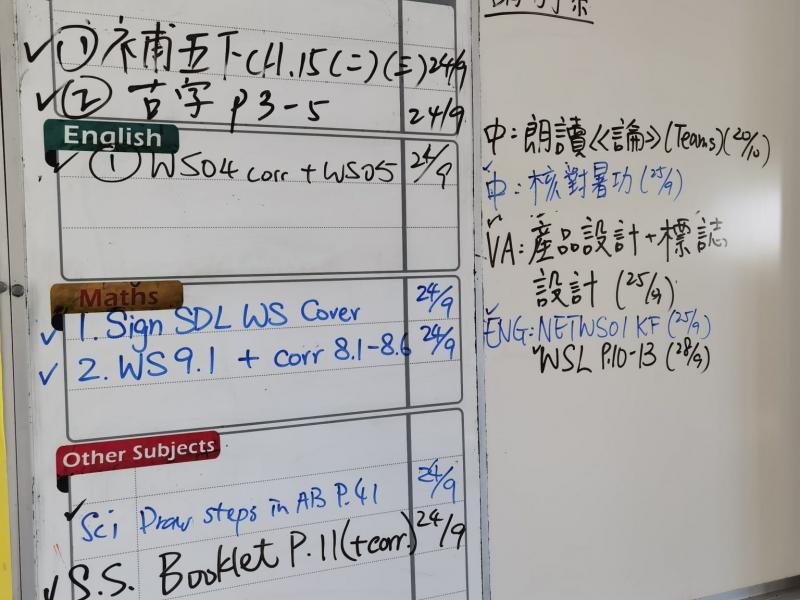 ① 補五下CH.15(二)(三) 24/9
② 苦字 P3-5 24/9
English
① WS04 corr + WS05 24/9
Maths
1. Sign SDL WS Cover 24/9
2. WS 9.1 + corr 8.1-8.6 24/9
Other Subjects
Sci Draw steps in AB P.41 24/9
S.S. Booklet P.11(+corr.) 24/9
中:朗讀《論》(Teams)(20/10)
中:核對暑功(25/9)
VA:產品設計+標誌
設計(25/9)
ENG:NETWS01 KF (25/9)
WSL P.10-13 (28/9)